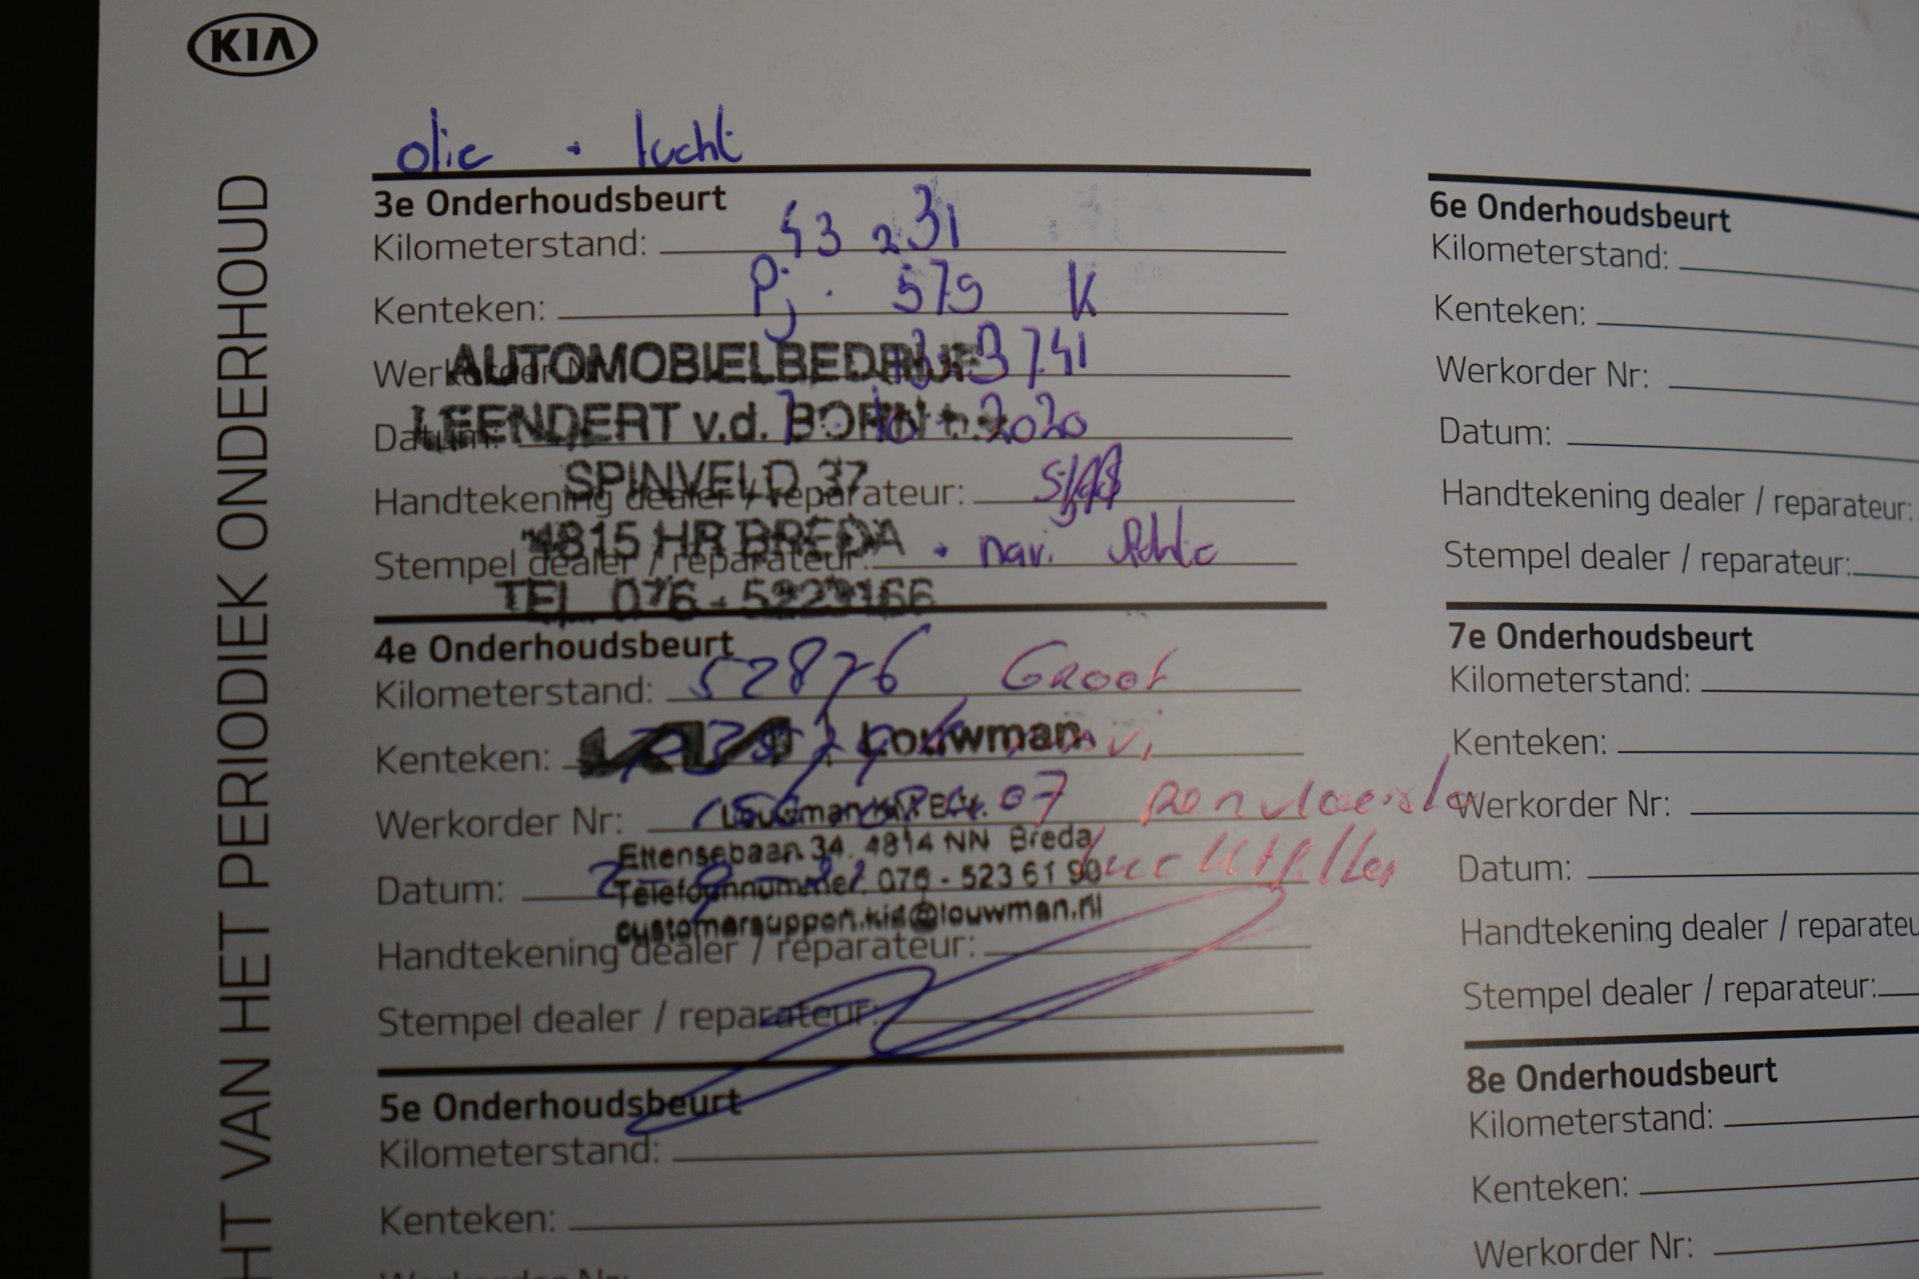 KIA
HT VAN HET PERIODIEK ONDERHOUD
olie + lucht
3e Onderhoudsbeurt
Kilometerstand: 43 231
Kenteken: Pj. 579 K
Werkorder Nr: 3741
AUTOMOBIELBEDRIJF
Datum: 2020
LEENDERT v.d. BORN
SPINVELD 37
Handtekening dealer / reparateur:
4815 HR BREDA
Stempel dealer / reparateur: + nav.
TEL 076 - 5223166
4e Onderhoudsbeurt
Kilometerstand: 52876 Groot
Kenteken:
KIA Louwman
Werkorder Nr: 07
Louwman KIA B.V.
Ettensebaan 34, 4814 NN Breda
Datum: luchtfilter
Telefoonnummer 076 - 523 61 90
customersupport.kia@louwman.nl
Handtekening dealer / reparateur:
Stempel dealer / reparateur:
5e Onderhoudsbeurt
Kilometerstand:
Kenteken:
Werkorder Nr:
6e Onderhoudsbeurt
Kilometerstand:
Kenteken:
Werkorder Nr:
Datum:
Handtekening dealer / reparateur:
Stempel dealer / reparateur:
7e Onderhoudsbeurt
Kilometerstand:
Kenteken:
Werkorder Nr:
Datum:
Handtekening dealer / reparateu
Stempel dealer / reparateur:
8e Onderhoudsbeurt
Kilometerstand:
Kenteken:
Werkorder Nr: